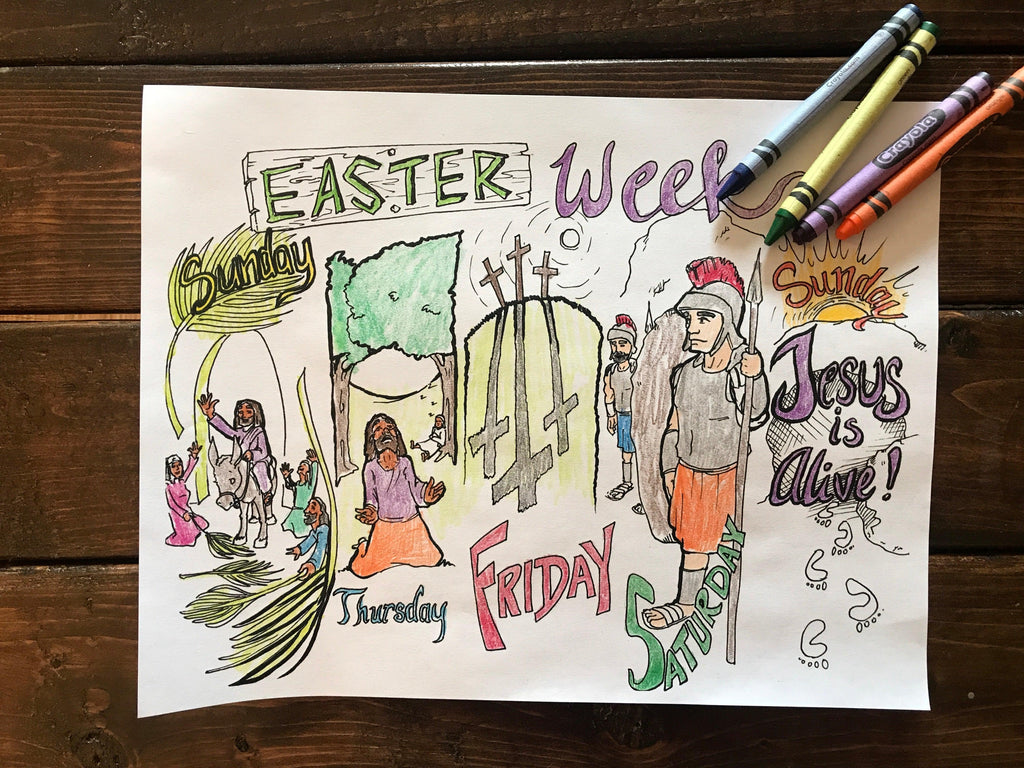 EASTER Week
Sunday
Thursday
FRIDAY
SATURDAY
Sunday
Jesus
is
Alive!
Crayola
Crayola